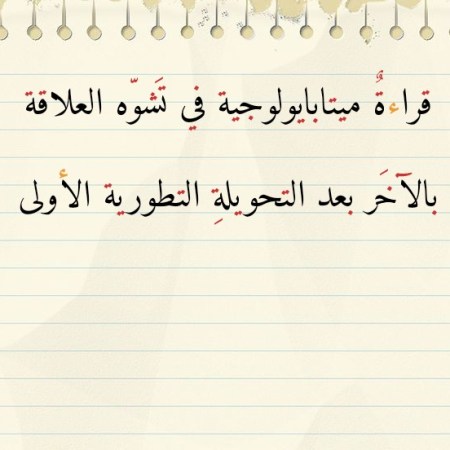 قراءةٌ ميتابايولوجية في تَشوّه العلاقة
بالآخَر بعد التحويلةِ التطورية الأولى